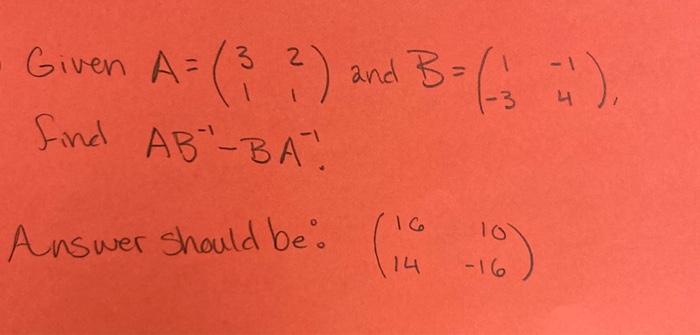 Given A = (3 2
1 1) and B = (1 -1
-3 4),
find AB⁻¹ - BA⁻¹.
Answer should be: (16 10
14 -16)